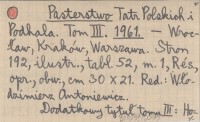 Pasterstwo Tatr Polskich i
Podhala. Tom III. 1961. — Wroc-
ław, Kraków, Warszawa. Stron
192, ilustr., tabl. 52, m. 1, Rés.,
opr., obw., cm 30 X 21. Red.: Wło-
dzimierz Antoniewicz.
Dodatkowy tytuł tomu III: Ho-